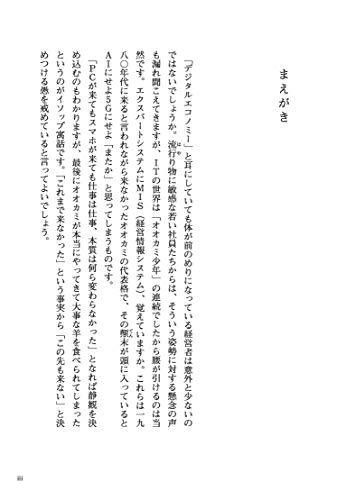 まえがき
「デジタルエコノミー」と耳にしていても体が前のめりになっている経営者は意外と少ないの
ではないでしょうか。流行り物に敏感な若い社員たちからは、そういう姿勢に対する懸念の声
も漏れ聞こえてきますが、ITの世界は「オオカミ少年」の連続でしたから腰が引けるのは当
然です。エクスパートシステムにMIS(経営情報システム)、覚えていますか。これらは一九
八〇年代に来ると言われながら来なかったオオカミの代表格で、その顛末が頭に入っていると
AIにせよ5Gにせよ「またか」と思ってしまうものです。
「PCが来てもスマホが来ても仕事は仕事、本質は何ら変わらなかった」となれば静観を決
め込むのもわかりますが、最後にオオカミが本当にやってきて大事な羊を食べられてしまった
というのがイソップ寓話です。「これまで来なかった」という事実から「この先も来ない」と決
めつける愚を戒めていると言ってよいでしょう。
iii